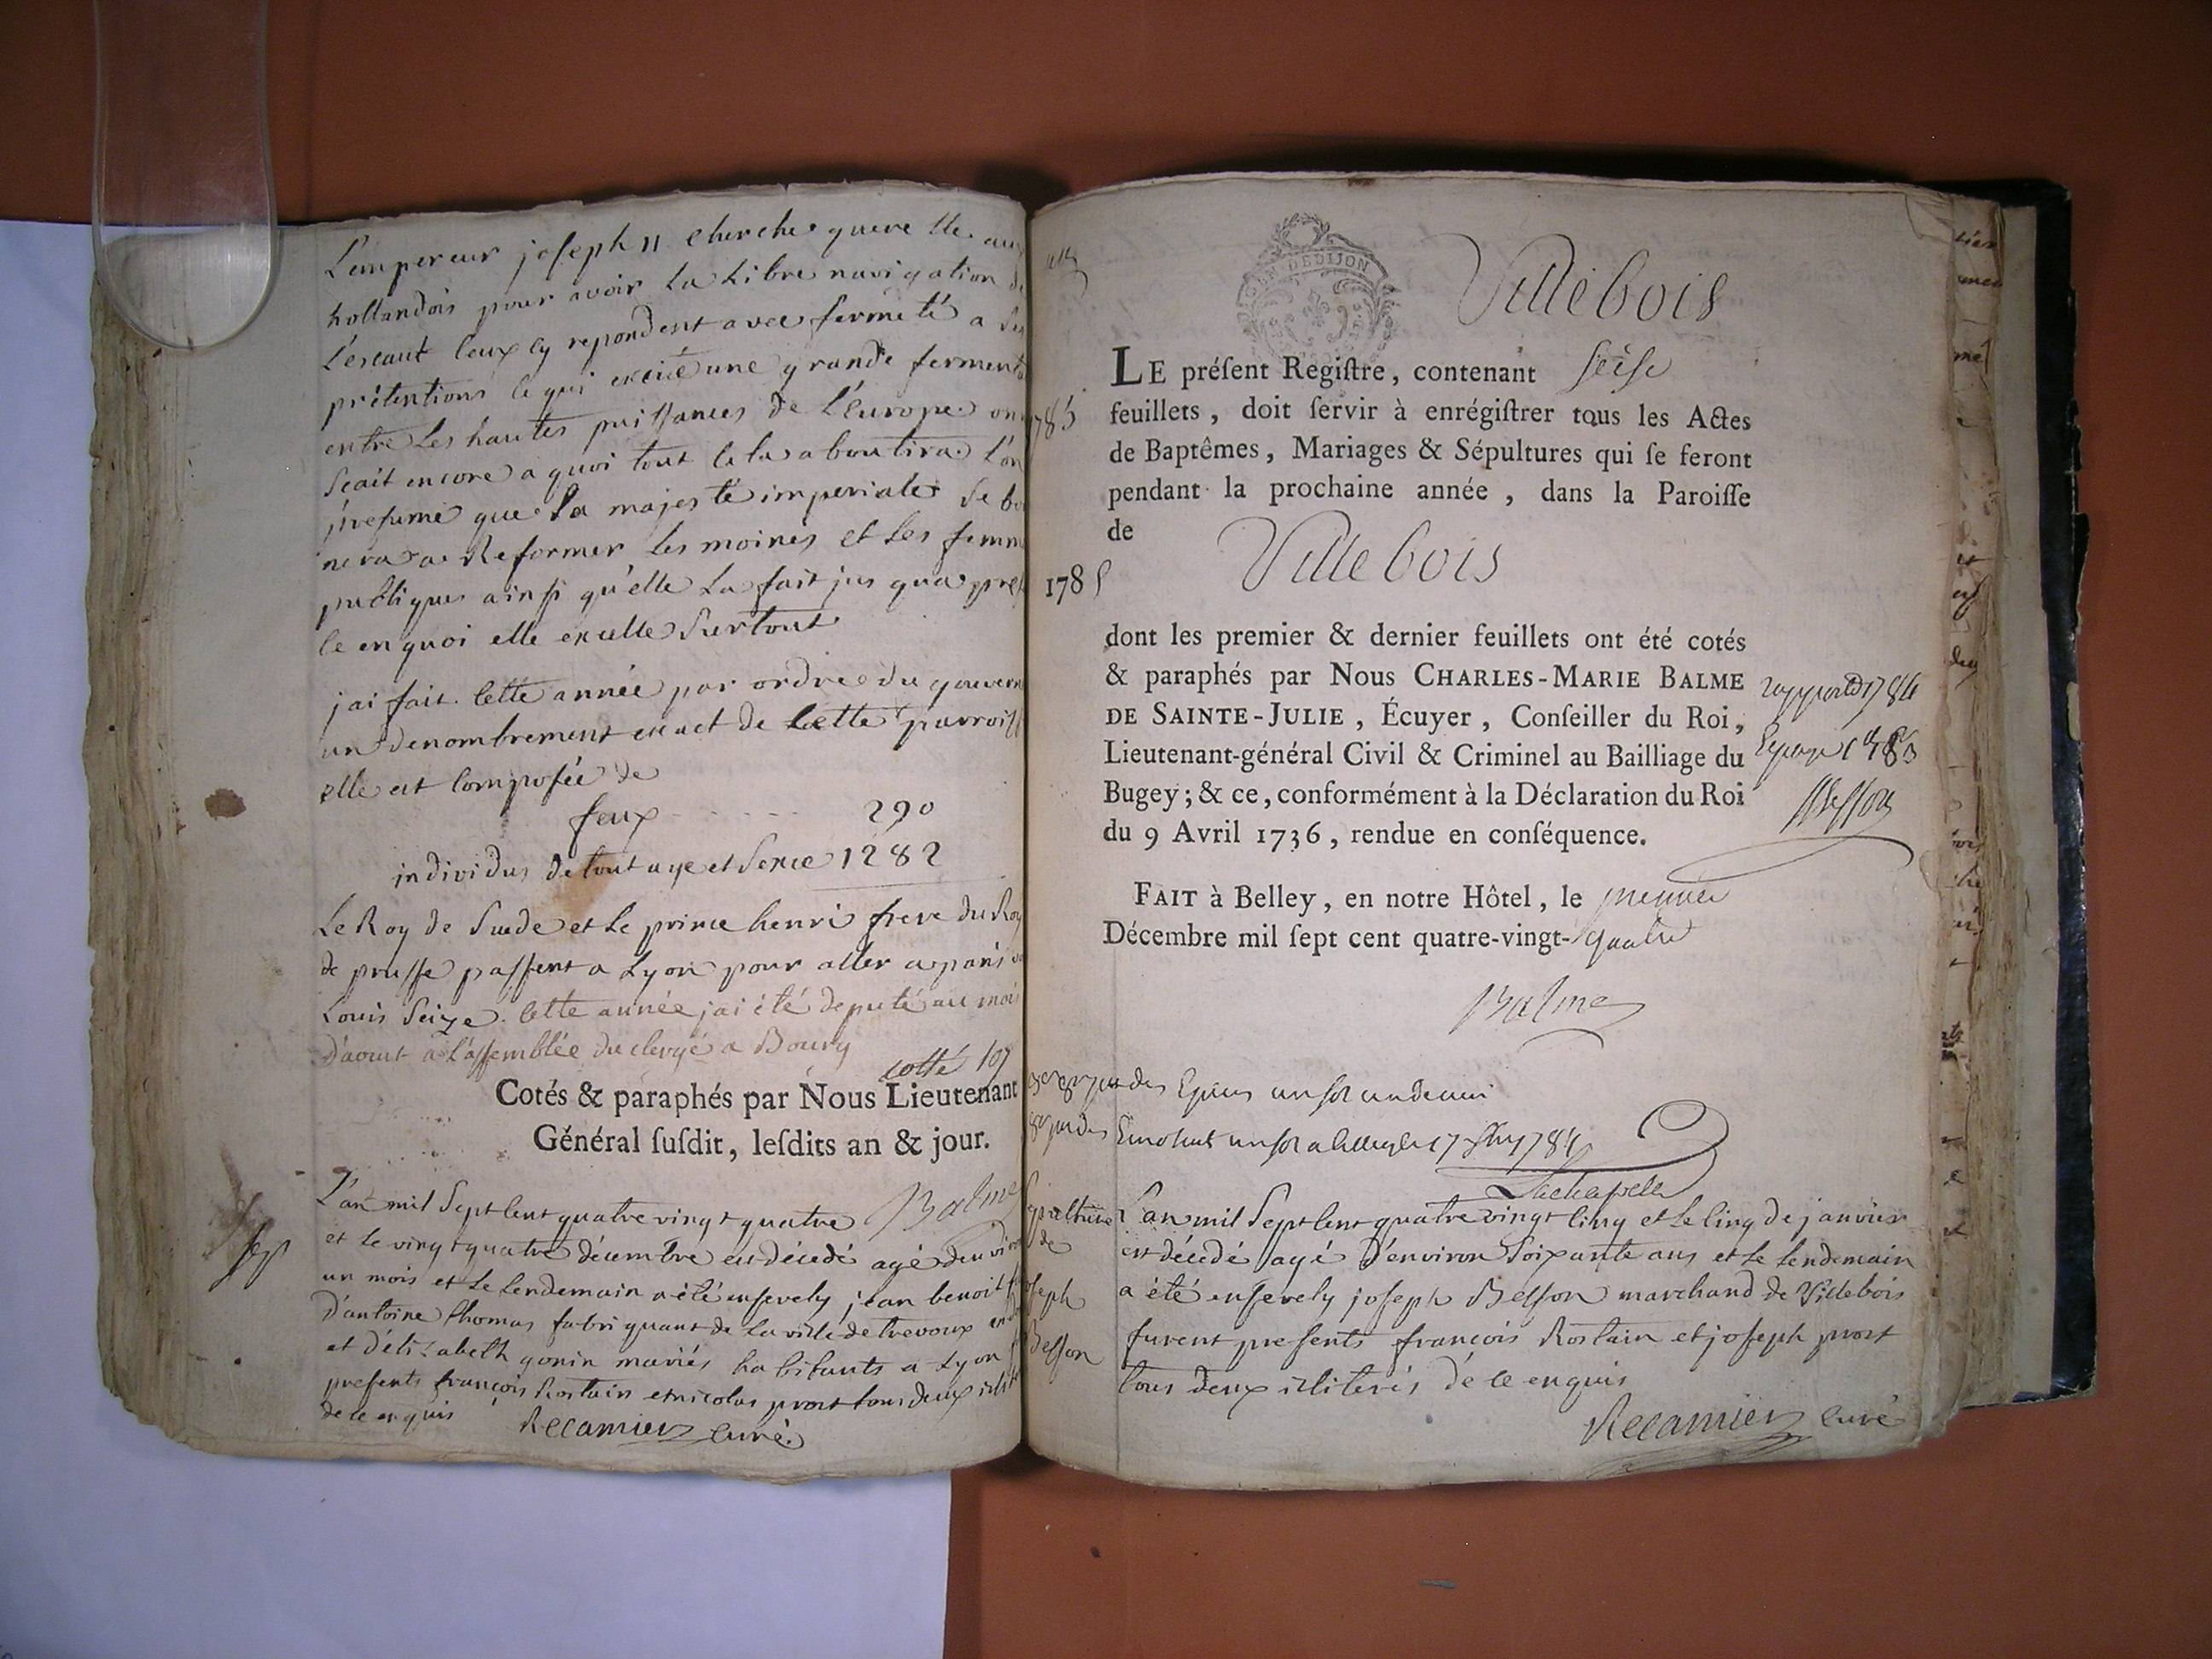 L'empereur joseph II cherche querelle aux
hollandois pour avoir la libre navigation de
l'escaut ceux cy repondent avec fermeté a ses
prétentions ce qui excite une grande ferment
entre les hautes puissances de l'europe on
sçait encore a quoi tout cela aboutira l'on
présume que sa majesté imperiale se bo
nera a reformer les moines et les femm
publiques ainsi qu'elle la fait jus qua pres
ce en quoi elle excelle surtout
jai fait cette année par ordre du gouvern
un denombrement exact de cette parroiss
elle est composée de
feux ...... 290
individus de tout age et sexe 1282
Le Roy de suede et le prince henri frere du Roy
de prusse passent a Lyon pour aller a paris
Louis seize. cette année jai été deputé au mois
d'aoust a l'assemblée du clergé a Bourg
cotté 107
Cotés & paraphés par Nous Lieutenant
Général ſuſdit, leſdits an & jour.
Balme
L'an mil sept cent quatre vingt quatre
et le vingt quatre décembre est décedé agé denviron
un mois et le lendemain a été ensevely jean benoit
d'antoine thomas fabriquant de la ville de trevoux
et d'élizabeth gonin mariés habitants a Lyon
presents françois Rostain et nicolas prost tous deux
de ce enquis Recamier curé
DIJON
Villebois
LE préſent Regiſtre, contenant seise
feuillets, doit ſervir à enrégiſtrer tous les Actes
de Baptêmes, Mariages & Sépultures qui ſe feront
pendant la prochaine année, dans la Paroiſſe
de Villebois
1785
dont les premier & dernier feuillets ont été cotés
& paraphés par Nous CHARLES-MARIE BALME
DE SAINTE-JULIE, Écuyer, Conſeiller du Roi,
Lieutenant-général Civil & Criminel au Bailliage du
Bugey; & ce, conformément à la Déclaration du Roi
du 9 Avril 1736, rendue en conſéquence.
FAIT à Belley, en notre Hôtel, le premier
Décembre mil ſept cent quatre-vingt-quatre
Balme
Lachapelle
sepulture
de
joseph
Besson
L'an mil sept cent quatre vingt cinq et le cinq de janvier
est décédé agé d'environ soixante ans et le lendemain
a été ensevely joseph Besson marchand de Villebois
furent presents françois Rostain et joseph prost
tous deux illiterés de ce enquis
Recamier curé